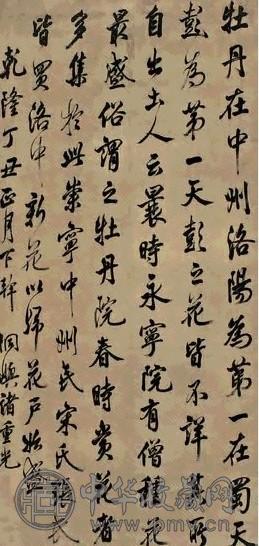 牡丹在中州洛陽為第一在蜀天
彭為第一天彭之花皆不詳其所
自出土人云曩時永寧院有僧種花
最盛俗謂之牡丹院春時賞花者
多集於此崇寧中州民宋氏張氏
皆買洛中新花以歸花戶始盛
乾隆丁丑正月下澣桐嶼諸重光
中华收藏网